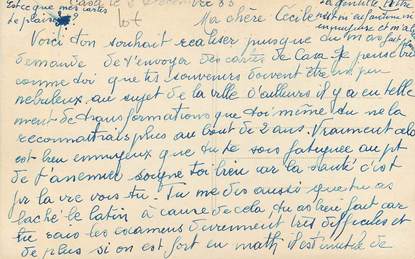 Est ce que mes cartes
te plaisent?
Ma chère Cécile
Voici ton souhait réaliser puisque tu m'as fait
demande de t'envoyer des cartes de Casa. Je pense bien
comme toi que tes souvenirs doivent être un peu
nebuleux au sujet de la ville d'ailleurs il y a telle
ment de transformations que toi même tu ne la
reconnaitrais plus au bout de 2 ans. Vraiment cela
est bien ennuyeux que tu te sois fatiguée au pt
de t'anemier soigne toi bien car la santé c'est
pr la vie vois tu. Tu me dis aussi que tu as
laché le latin à cause de cela, tu as bien fait car
tu sais les examens deviennent très difficiles et
de plus si on est fort en math il est inutile de